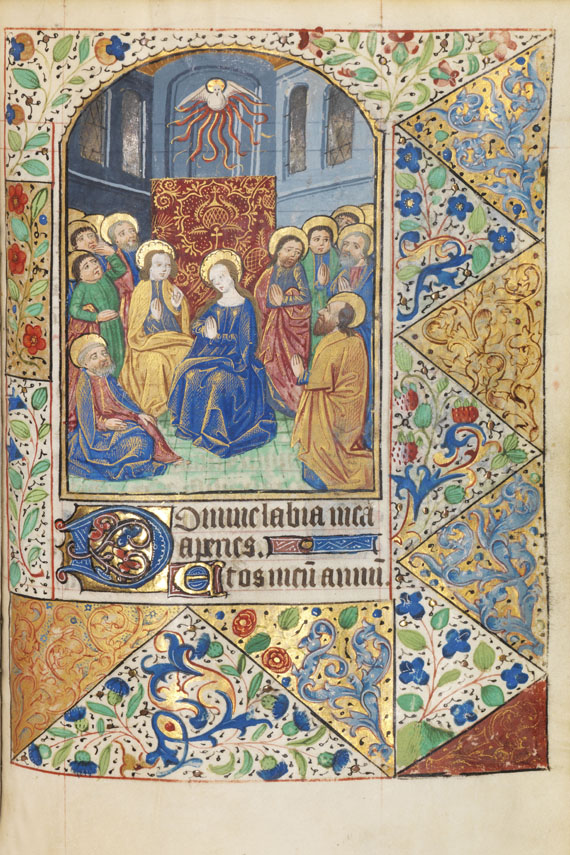 Domine labia mea
aperies.
Et os meū annū